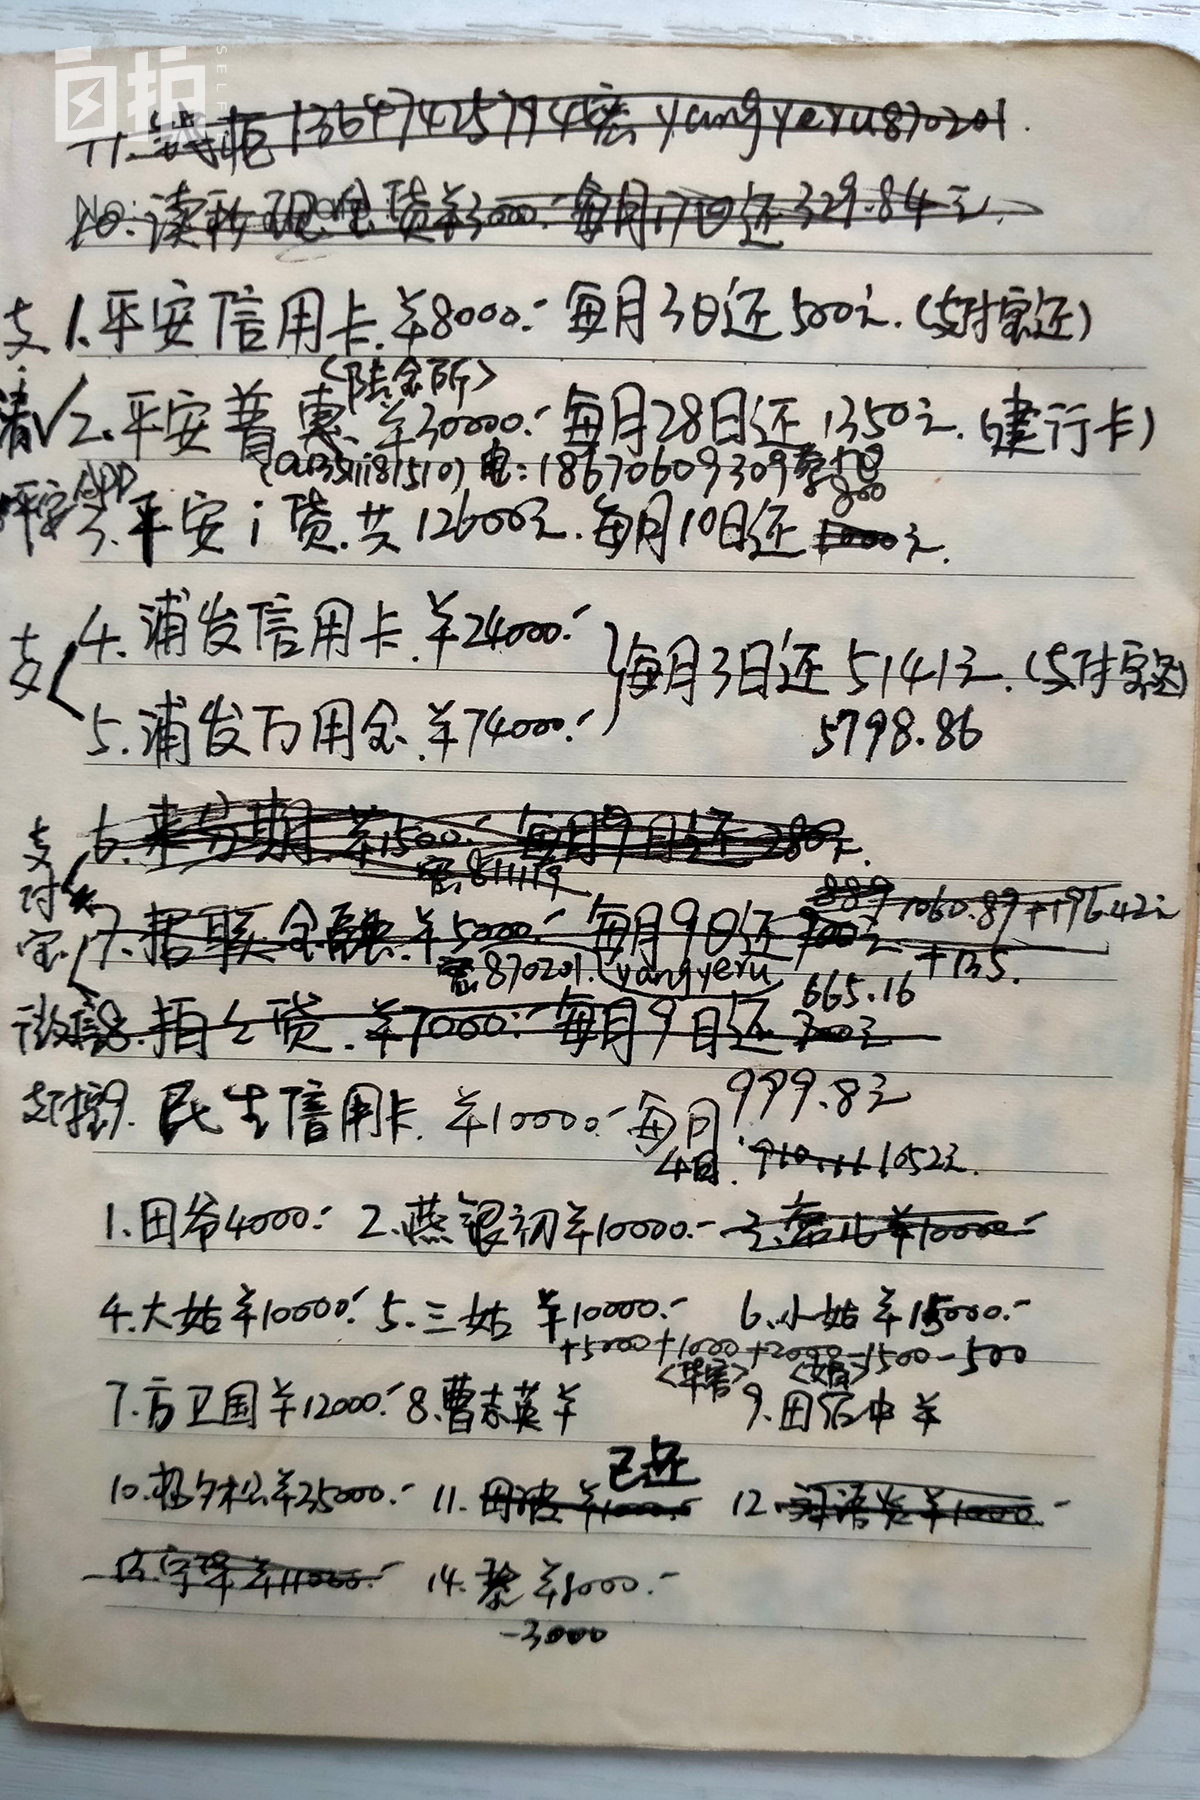 自拍
SELF
11. 钱柜 13647425794 密 yangyeru870201.
10. 读秒现金贷 ¥3000.- 每月17日还329.84元.
支 1. 平安信用卡. ¥8000.- 每月3日还500元. (支付宝还)
<陆金所>
清√2. 平安普惠. ¥30000.- 每月28日还1350元. (建行卡)
电: 18670609309
平安APP 800
3. 平安i贷. 共12600元. 每月10日还1000元.
支 4. 浦发信用卡. ¥24000.-
每月3日还5141元. (支付宝还)
5. 浦发万用金. ¥74000.- 5798.86
6. 来分期. ¥1500.- 每月9日还280元.
密.811119 889 1060.89+196.42元
支付宝 7. 拮联金融. ¥5000.- 每月9日还900元 +135.
密.870201. (yangyeru 665.16
微信 8. 拍々贷. ¥7000.- 每月9日还700元
999.8元
支付宝 9. 民生信用卡. ¥10000.- 每月
4日. 910.11 1052元.
1. 田爷4000.- 2. 燕银初¥10000.- 3. ¥10000.-
4. 大姑¥10000.- 5. 三姑 ¥10000.- 6. 小姑 ¥15000.-
+5000+1000+2000-1500-500
7. 方卫国¥12000.- 8. 曹志英¥ 9. 田 中 ¥
已还
10. 杨夕松¥35000.- 11. 田波 ¥1000.- 12. ¥1000.-
13. 宇锋¥11000.- 14. 黎 ¥8000.-
-3000